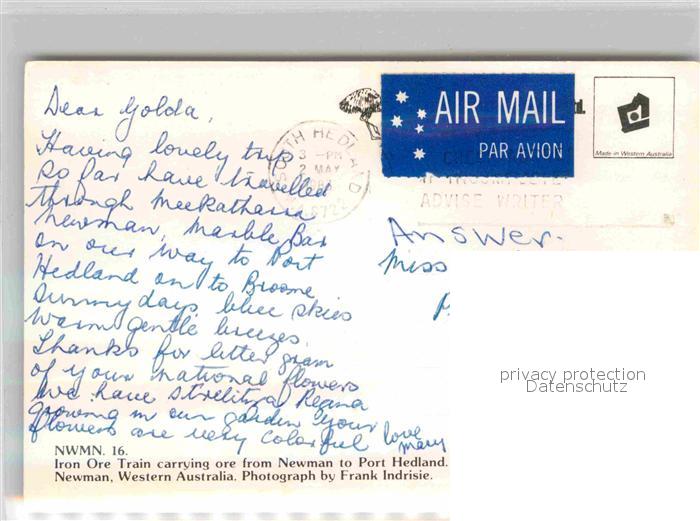 Dear Golda,
Having lovely trip
so far have travelled
through Meekatharra
Newman, Marble Bar
on our way to Port
Hedland on to Broome
Sunny days blue skies
warm gentle breezes.
Thanks for letter gram
of your national flowers
We have Strelitzia Regina
growing in our garden your
flowers are very colorful love
Mary
NWMN. 16.
Iron Ore Train carrying ore from Newman to Port Hedland.
Newman, Western Australia. Photograph by Frank Indrisie.
TH HEDLAND
3 - PM
2 MAY
6722
AIR MAIL
PAR AVION
ADVISE WRITER
d
Made in Western Australia
Answer.
Miss
privacy protection
Datenschutz